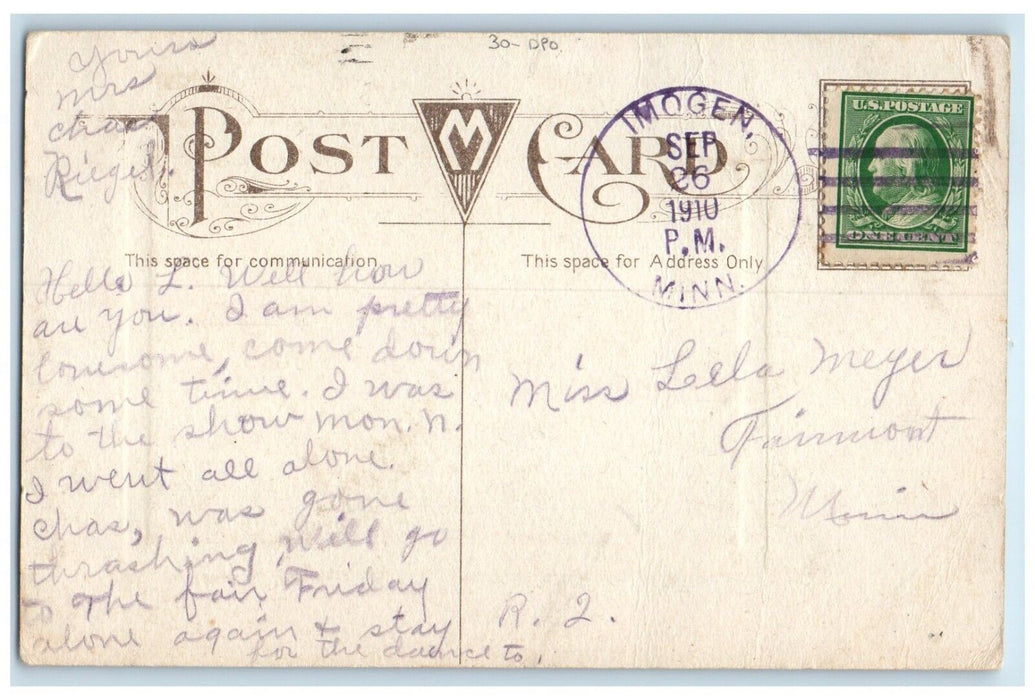 30- DPO.
Yours
Mrs
Chas
Riegel.
POST CARD
M
IMOGEN,
SEP
26
1910
P.M.
MINN.
U.S. POSTAGE
ONE CENT
This space for communication
This space for Address Only
Hello L. Well how
are you. I am pretty
lonesome, come down
some time. I was
to the show mon. n.
I went all alone.
Chas, was gone
thrashing, will go
to the fair Friday
alone again & stay
for the dance to,
Miss Lela Meyer
Fairmont
Minn
R. 2.